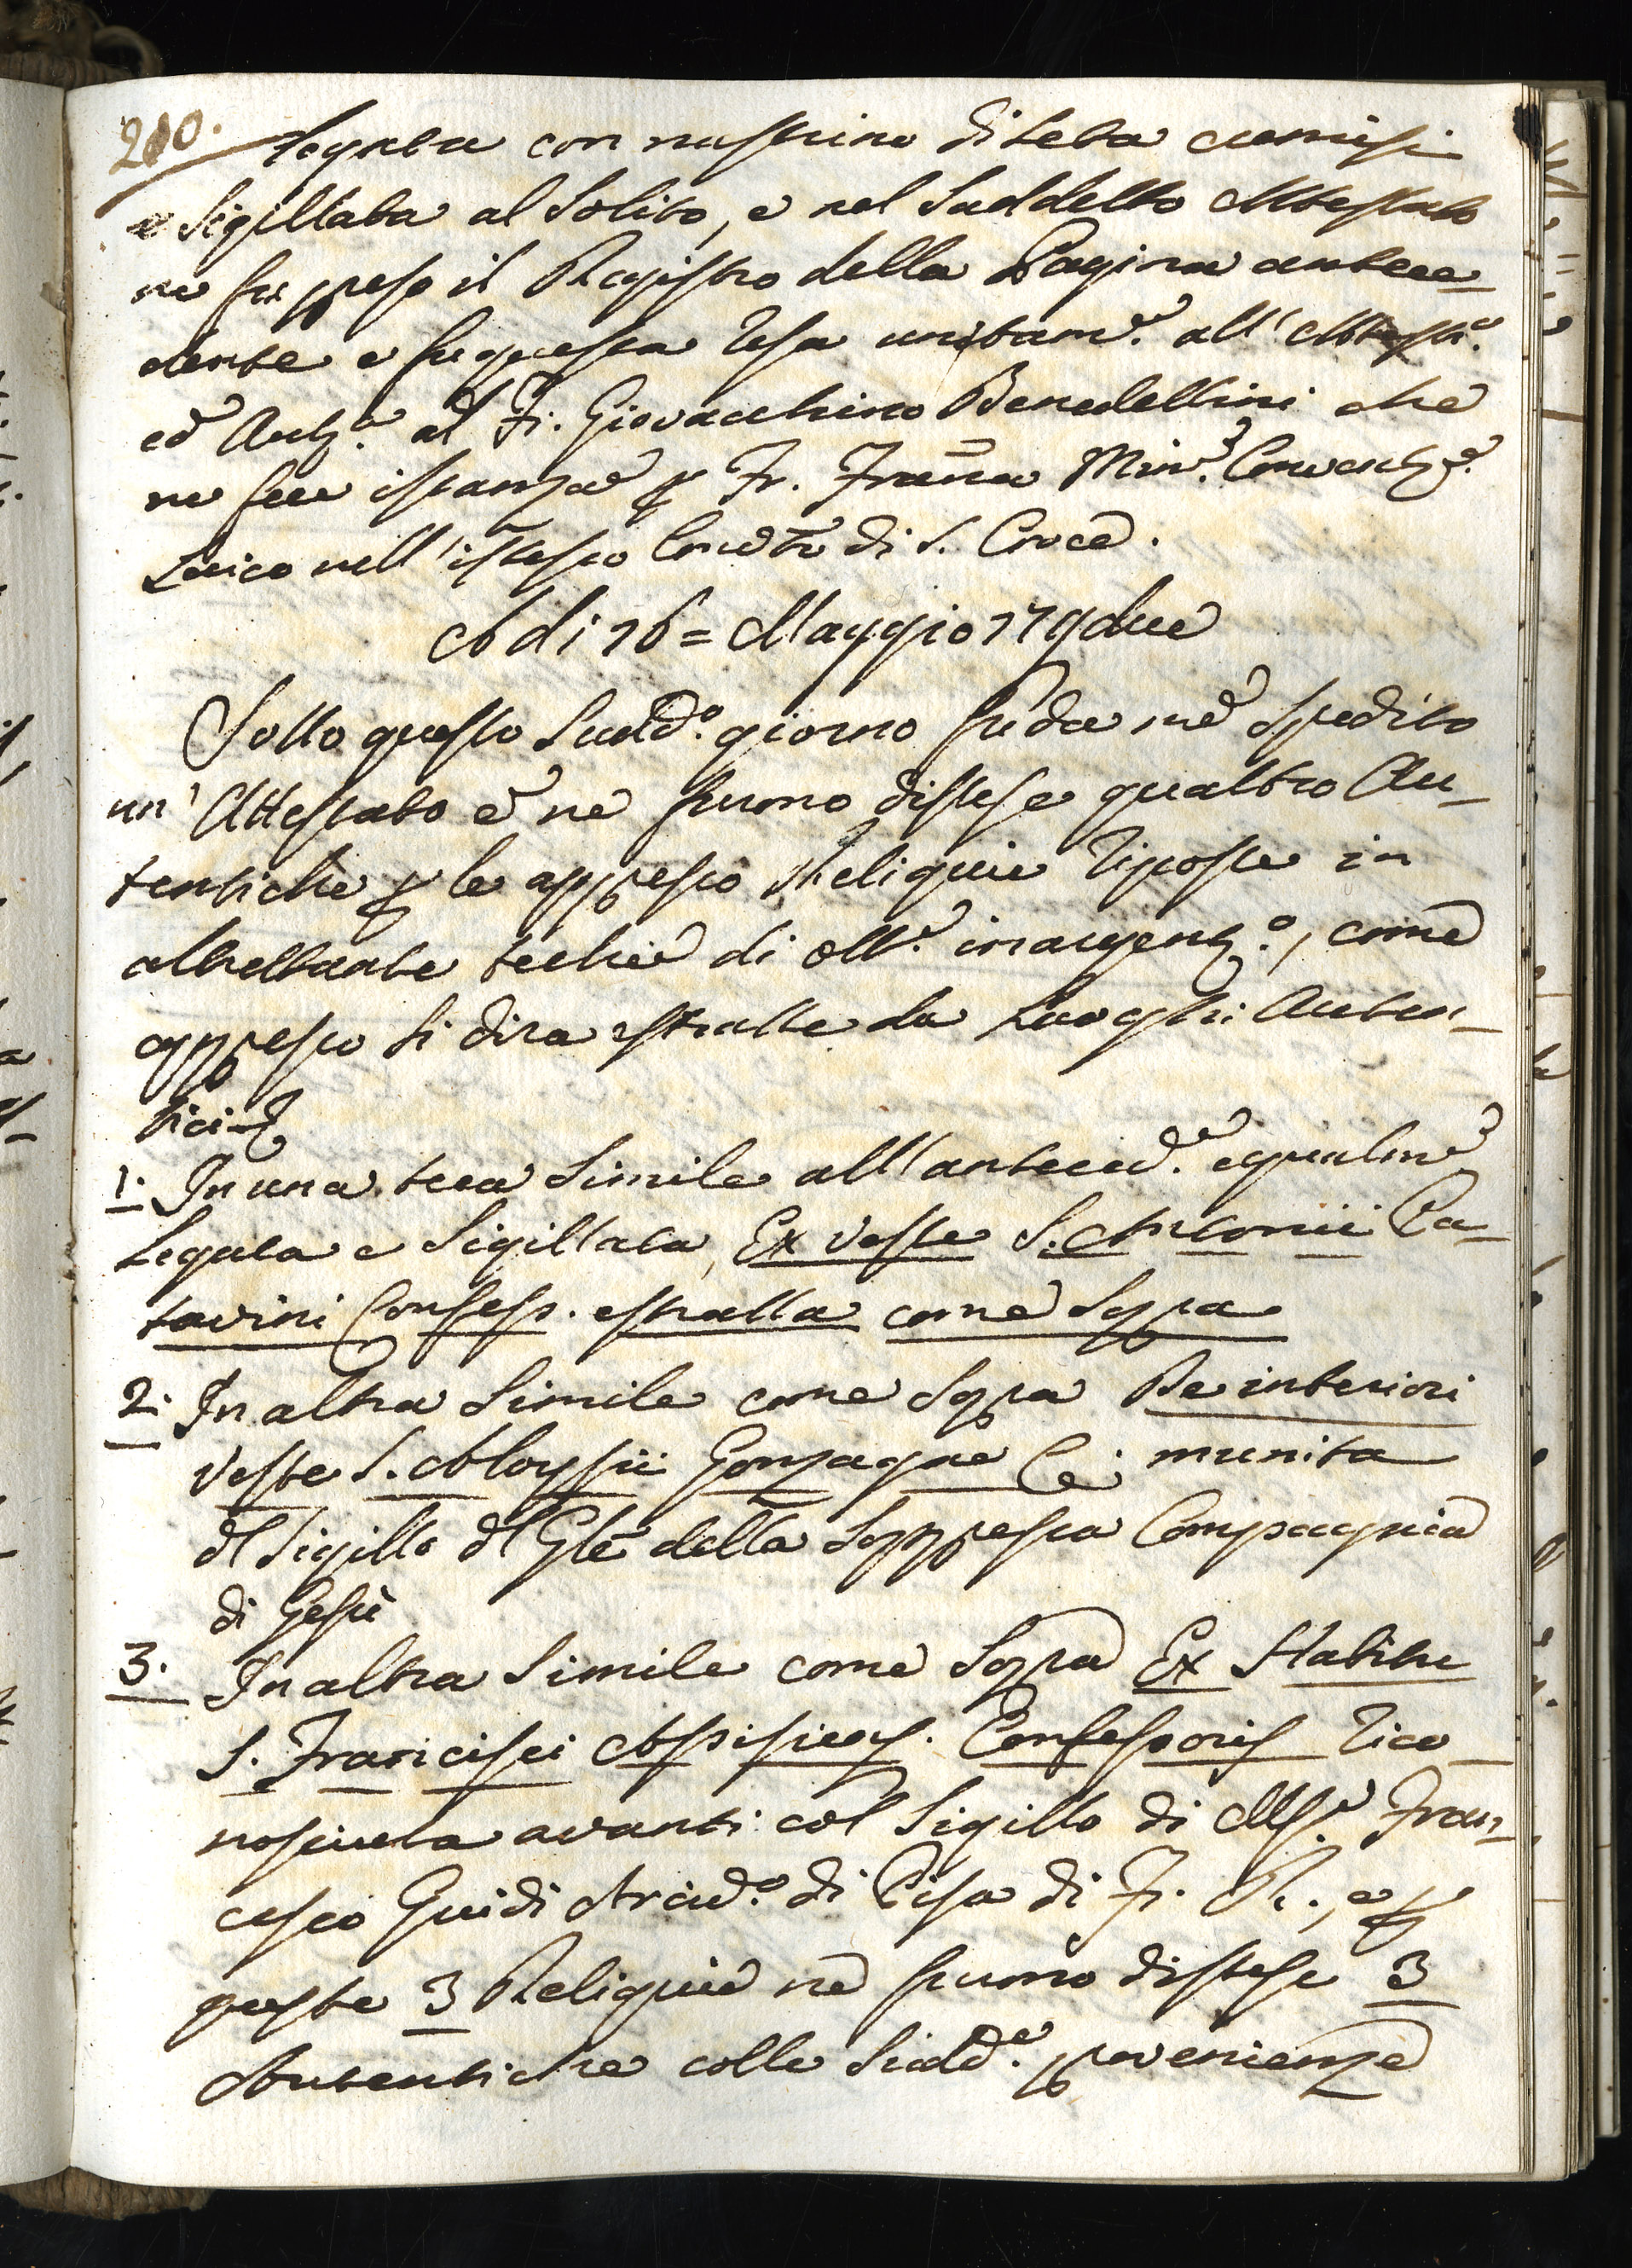 210.
legata con nastrino di seta cremisi
e Sigillata al Solito, e nel Suddetto Attestato
ne fu preso il Registro della Pagina antece-
dente e fu questa resa unitam.e all'Attest.o
ed Aut.a al Fr. Giovacchino Benedettini che
ne fece istanza p Fr. Franco Min.e Convent.e
Laico nell'istesso Convto di S. Croce.
A di 16 = Maggio 179due
Sotto questo Sudd.o giorno fu da me spedito
un' Attestato e ne furono distese quattro Au-
tentiche p le appresso Reliquie riposte in
altrettante teche di ott.e inargent.o, come
appresso si dira estratte da Luoghi Auten-
tici
1. In una teca Simile all'anteced.e egualme
Legata e Sigillata, Ex Veste S. Antonii Pa-
tavini Confess. estratta come Sopra
2. In altra Simile come Sopra Re interiori
Veste S. Aloysii Gonzagae C. munita
dl Sigillo dl Gle della Soppressa Compagnia
di Gesù
3. In altra Simile come Sopra Ex Habitu
S. Francisci Assisiens. Confessoris rico-
nosciuta avanti col Sigillo di Ms.r Fran-
cesco Guidi Arciv.o di Pisa di F. R., e p
queste 3 Reliquie ne furono distese 3
Autentiche colle Sudd.e provenienze